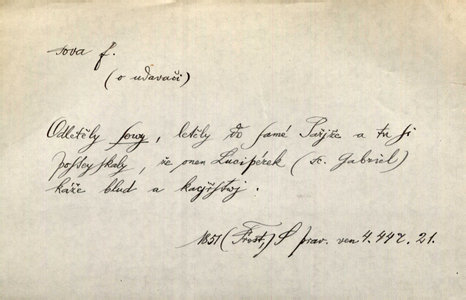 sova f.
(o udavači)
Odletěly sowy, letěly do samé Pařjže a tu si
postegskaly, že onen Lucipérek (sc. Gabriel)
káže blud a kacjřstwj.
1851 (Frost,) S prav. ven 4. 447. 21.